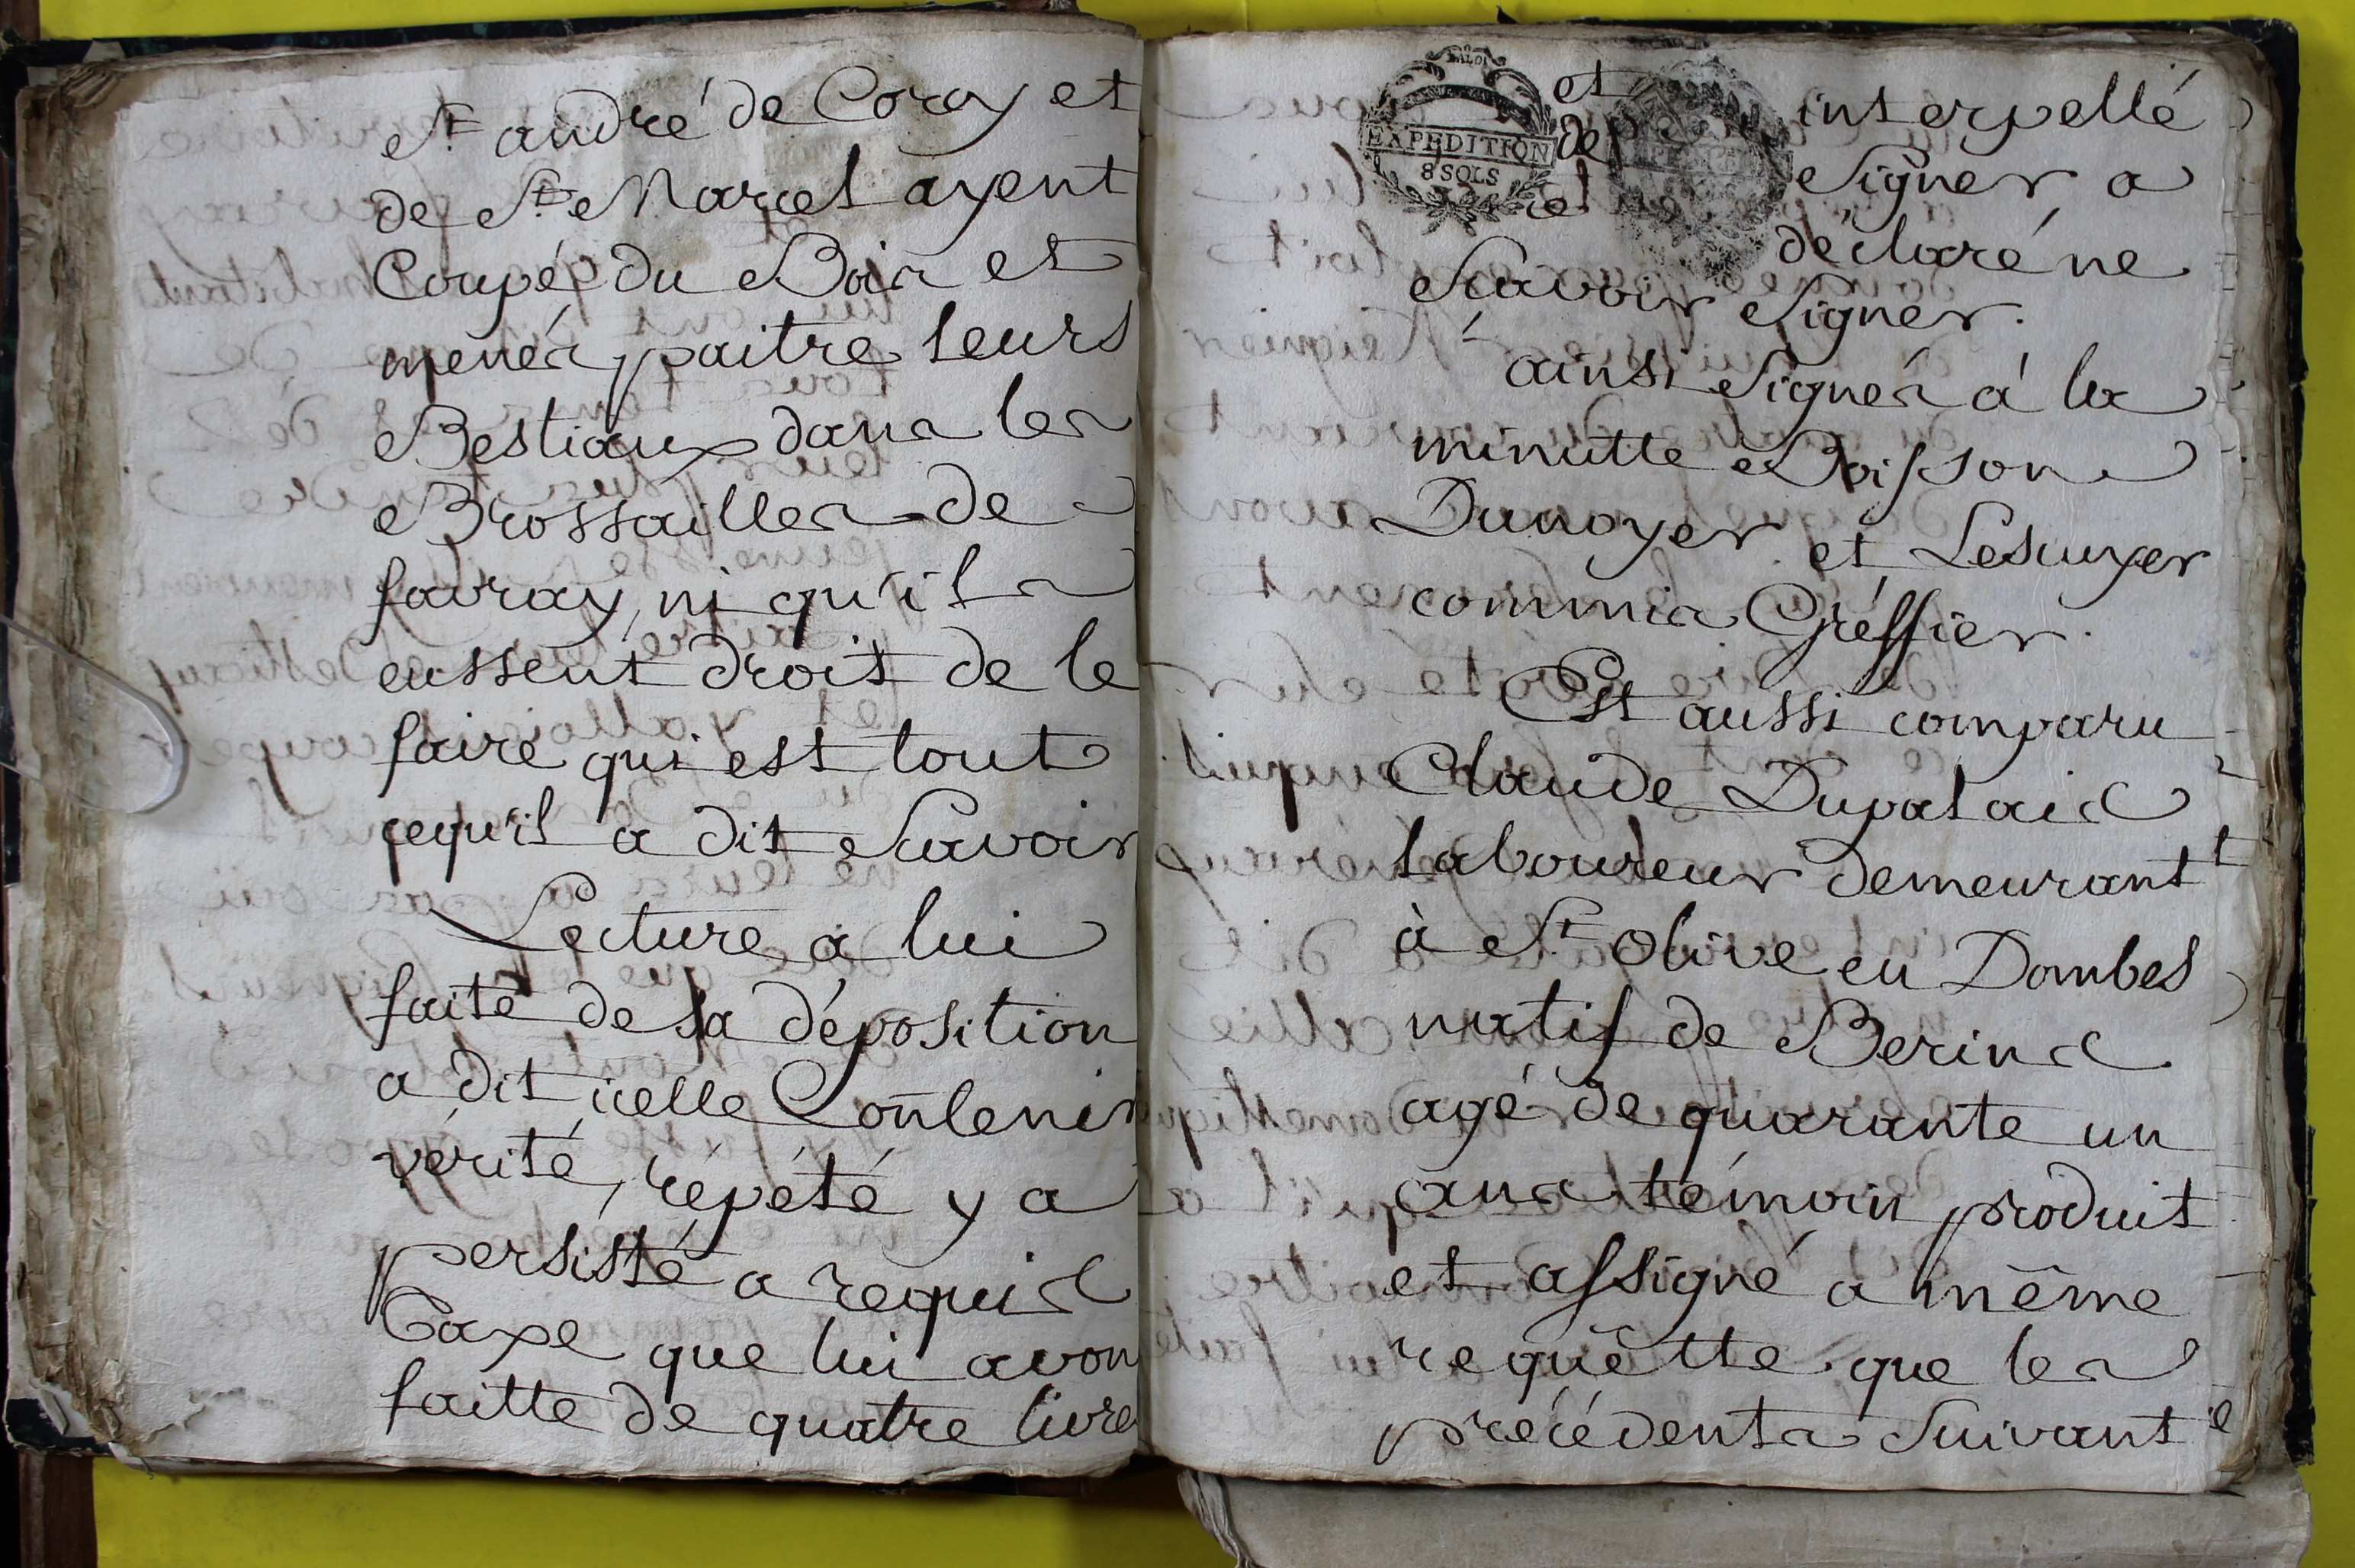 St andré de Coray et
de St Marcel ayent
Coupés du Bois et
menés paitre leurs
Bestiaux dans les
Brossailles de
favray, ni qu'ils
eussent droit de le
faire qui est tout
cequ'il a dit Scavoir
Lecture a lui
faite de sa déposition
a dit icelle Contenir
vérité, répété y a
persisté a requis
Taxe que lui avon
faitte de quatre livre
LALOI
EXPEDITION
8 SOLS
et interpellé
de Signer a
déclaré ne
Scavoir Signer.
ainsi Signés á la
minutte Boisson
Dunoyer et Lescuyer
commis Gréffier.
Est aussi comparu
Claude Dupalais
laboureur demeurant
à St Olive en Dombes
natif de Berins
agé de quarante un
ans témoin produit
et assigné a même
requêtte que les
précédents Suivant